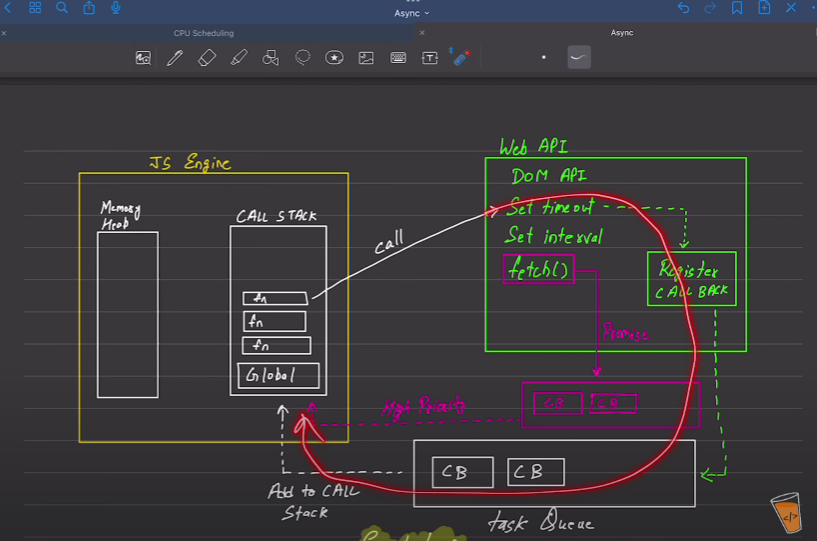 Async
CPU Scheduling
Async
JS Engine
Memory
Heab
CALL STACK
fn
fn
fn
Global
call
Web API
DOM API
Set timeout
Set interval
fetch()
Register
CALL BACK
Promise
High Priority
CB
CB
CB
CB
Add to CALL
Stack
task Queue